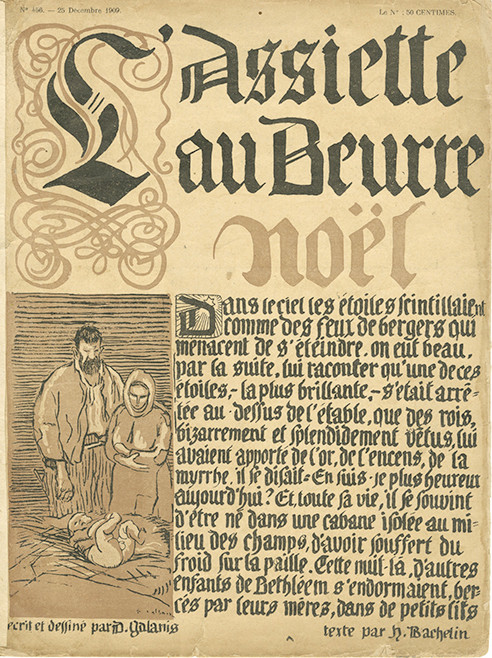 Nº 456. — 25 Décembre 1909.
Le Nº : 50 CENTIMES.
L'Assiette
au Beurre
noël
Dans le ciel les étoiles scintillaient
comme des feux de bergers qui
menacent de s'éteindre. on eut beau,
par la suite, lui raconter qu'une de ces
étoiles,- la plus brillante,- s'était arrê-
tée au-dessus de l'étable, que des rois,
bizarrement et splendidement vêtus, lui
avaient apporté de l'or, de l'encens, de la
myrrhe, il se disait:- En suis-je plus heureux
aujourd'hui? Et, toute sa vie, il se souvint
d'être né dans une cabane isolée au mi-
lieu des champs, d'avoir souffert du
froid sur la paille. Cette nuit-là, d'autres
enfants de Bethléem s'endormaient, ber-
cés par leurs mères, dans de petits lits
écrit et dessiné par D. Galanis
texte par H. Bachelin